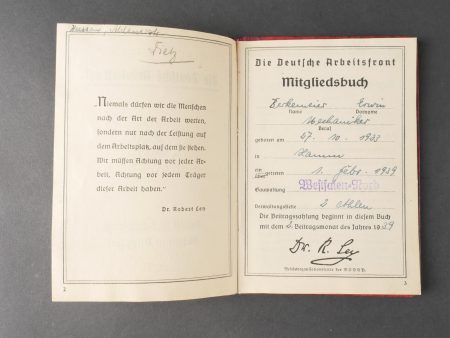 „Niemals dürfen wir die Menschen
nach der Art der Arbeit werten,
sondern nur nach der Leistung auf
dem Arbeitsplatz, auf dem sie stehen.
Wir müssen Achtung vor jeder Ar-
beit, Achtung vor jedem Träger
dieser Arbeit haben.“
Dr. Robert Ley
2
Die Deutsche Arbeitsfront
Mitgliedsbuch
Erwin
Name Vorname
Mechaniker
Beruf
geboren am 27. 10. 1923
in Hamm
ein
über getreten 1. Febr. 1939
Gauwaltung Westfalen-Nord
Verwaltungsstelle
Die Beitragszahlung beginnt in diesem Buch
mit dem 2. Beitragsmonat des Jahres 1939
Dr. R. Ley
Reichsorganisationsleiter der N.S.D.A.P.
3